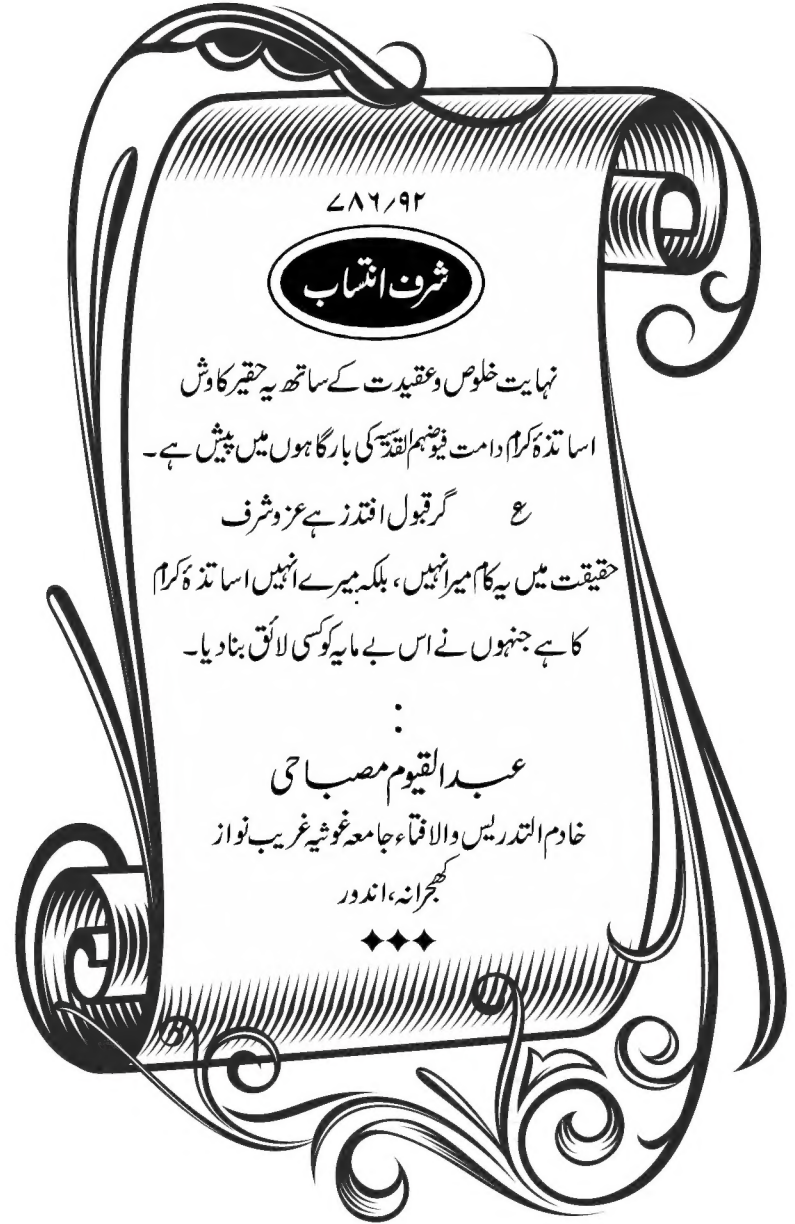 ۷۸۶/۹۲
شرف انتساب
نہایت خلوص وعقیدت کے ساتھ یہ حقیر کاوش
اساتذۂ کرام دامت فیوضہم القدسیہ کی بارگاہوں میں پیش ہے۔
ع گر قبول افتد ز ہے عز و شرف
حقیقت میں یہ کام میرا نہیں، بلکہ میرے انہیں اساتذۂ کرام
کا ہے جنہوں نے اس بے مایہ کو کسی لائق بنادیا۔
:
عبدالقیوم مصباحی
خادم التدریس والافتاء جامعہ غوثیہ غریب نواز
کھجرانہ، اندور